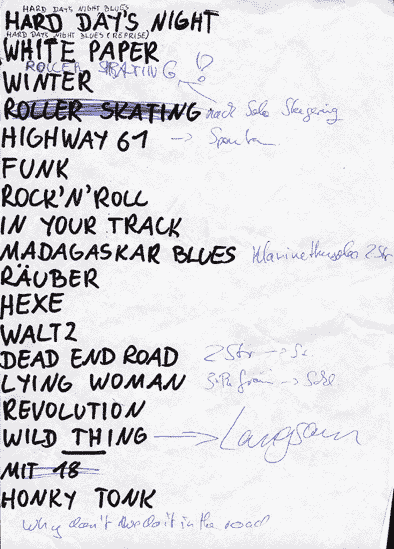 HARD DAYS NIGHT BLUES
HARD DAY'S NIGHT
HARD DAYS NIGHT BLUES (REPRISE)
WHITE PAPER
ROLLER SKATING
WINTER
ROLLER SKATING nach Solo Steigerung
HIGHWAY 61 →
FUNK
ROCK'N'ROLL
IN YOUR TRACK
MADAGASKAR BLUES 2 Str
RÄUBER
HEXE
WALTZ
DEAD END ROAD 2 Str →
LYING WOMAN →
REVOLUTION
WILD THING → Langsam
MIT 18
HONKY TONK
Why don't we do it in the road